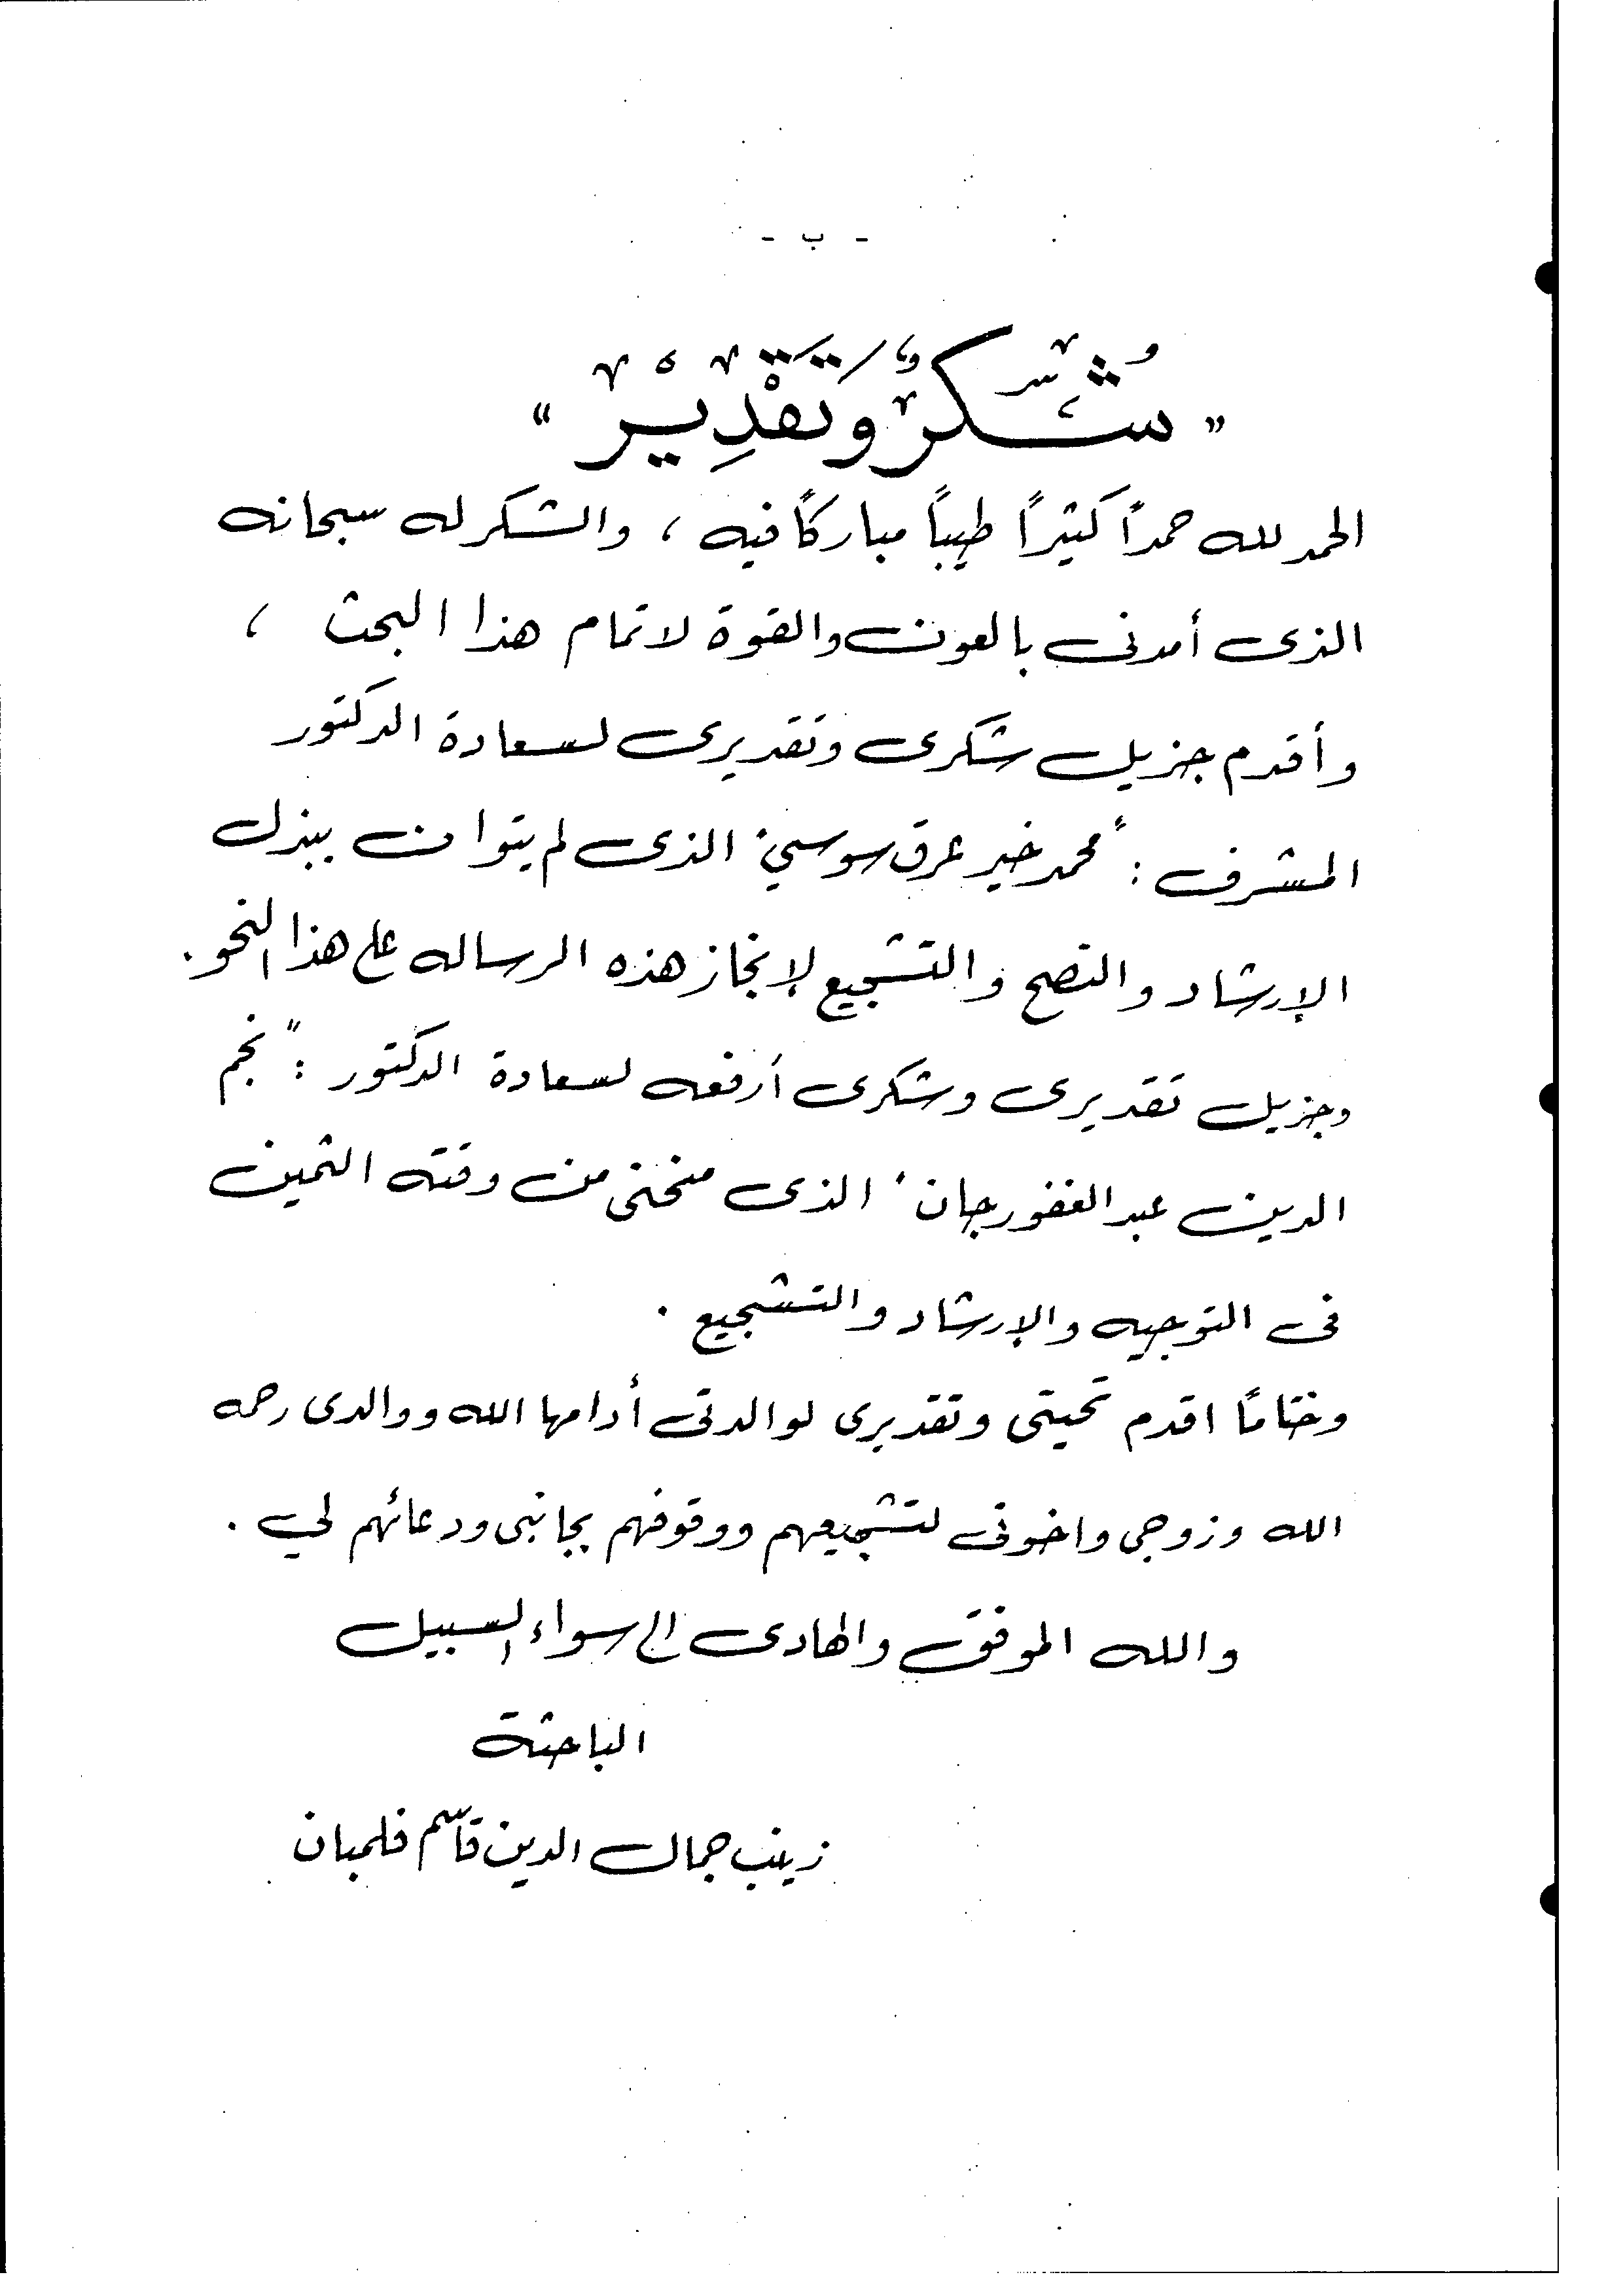 - ب -
" شُكْرٌ وَتَقْدِيْرٌ "
الحمد لله حمداً كثيراً طيباً مباركاً فيه ، والشكر له سبحانه
الذى أمدنى بالعون والقوة لاتمام هذا البحث ،
وأقدم جزيل شكرى وتقديرى لسعادة الدكتور
المشرف : "محمد خير عرق سوسي" الذى لم يتوان ببذل
الإرشاد والنصح والتشجيع لإنجاز هذه الرساله على هذا النحو .
وجزيل تقديرى وشكرى أرفعه لسعادة الدكتور : "نجم
الدين عبد الغفور جان" الذى منحنى من وقته الثمين
فى التوجيه والإرشاد والتشجيع .
وختاماً اقدم تحيتى وتقديرى لوالدتى أدامها الله ووالدى رحمه
الله وزوجى واخوتى لتشجيعهم ووقوفهم بجانبى ودعائهم لي .
والله الموفق والهادى الى سواء السبيل
الباحثة
زينب جمال الدين قاسم فلمبان